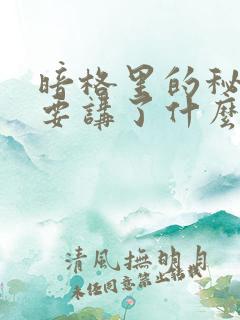 暗格里的秘
要講了什麼
清風撫明月
未经同意禁止转载